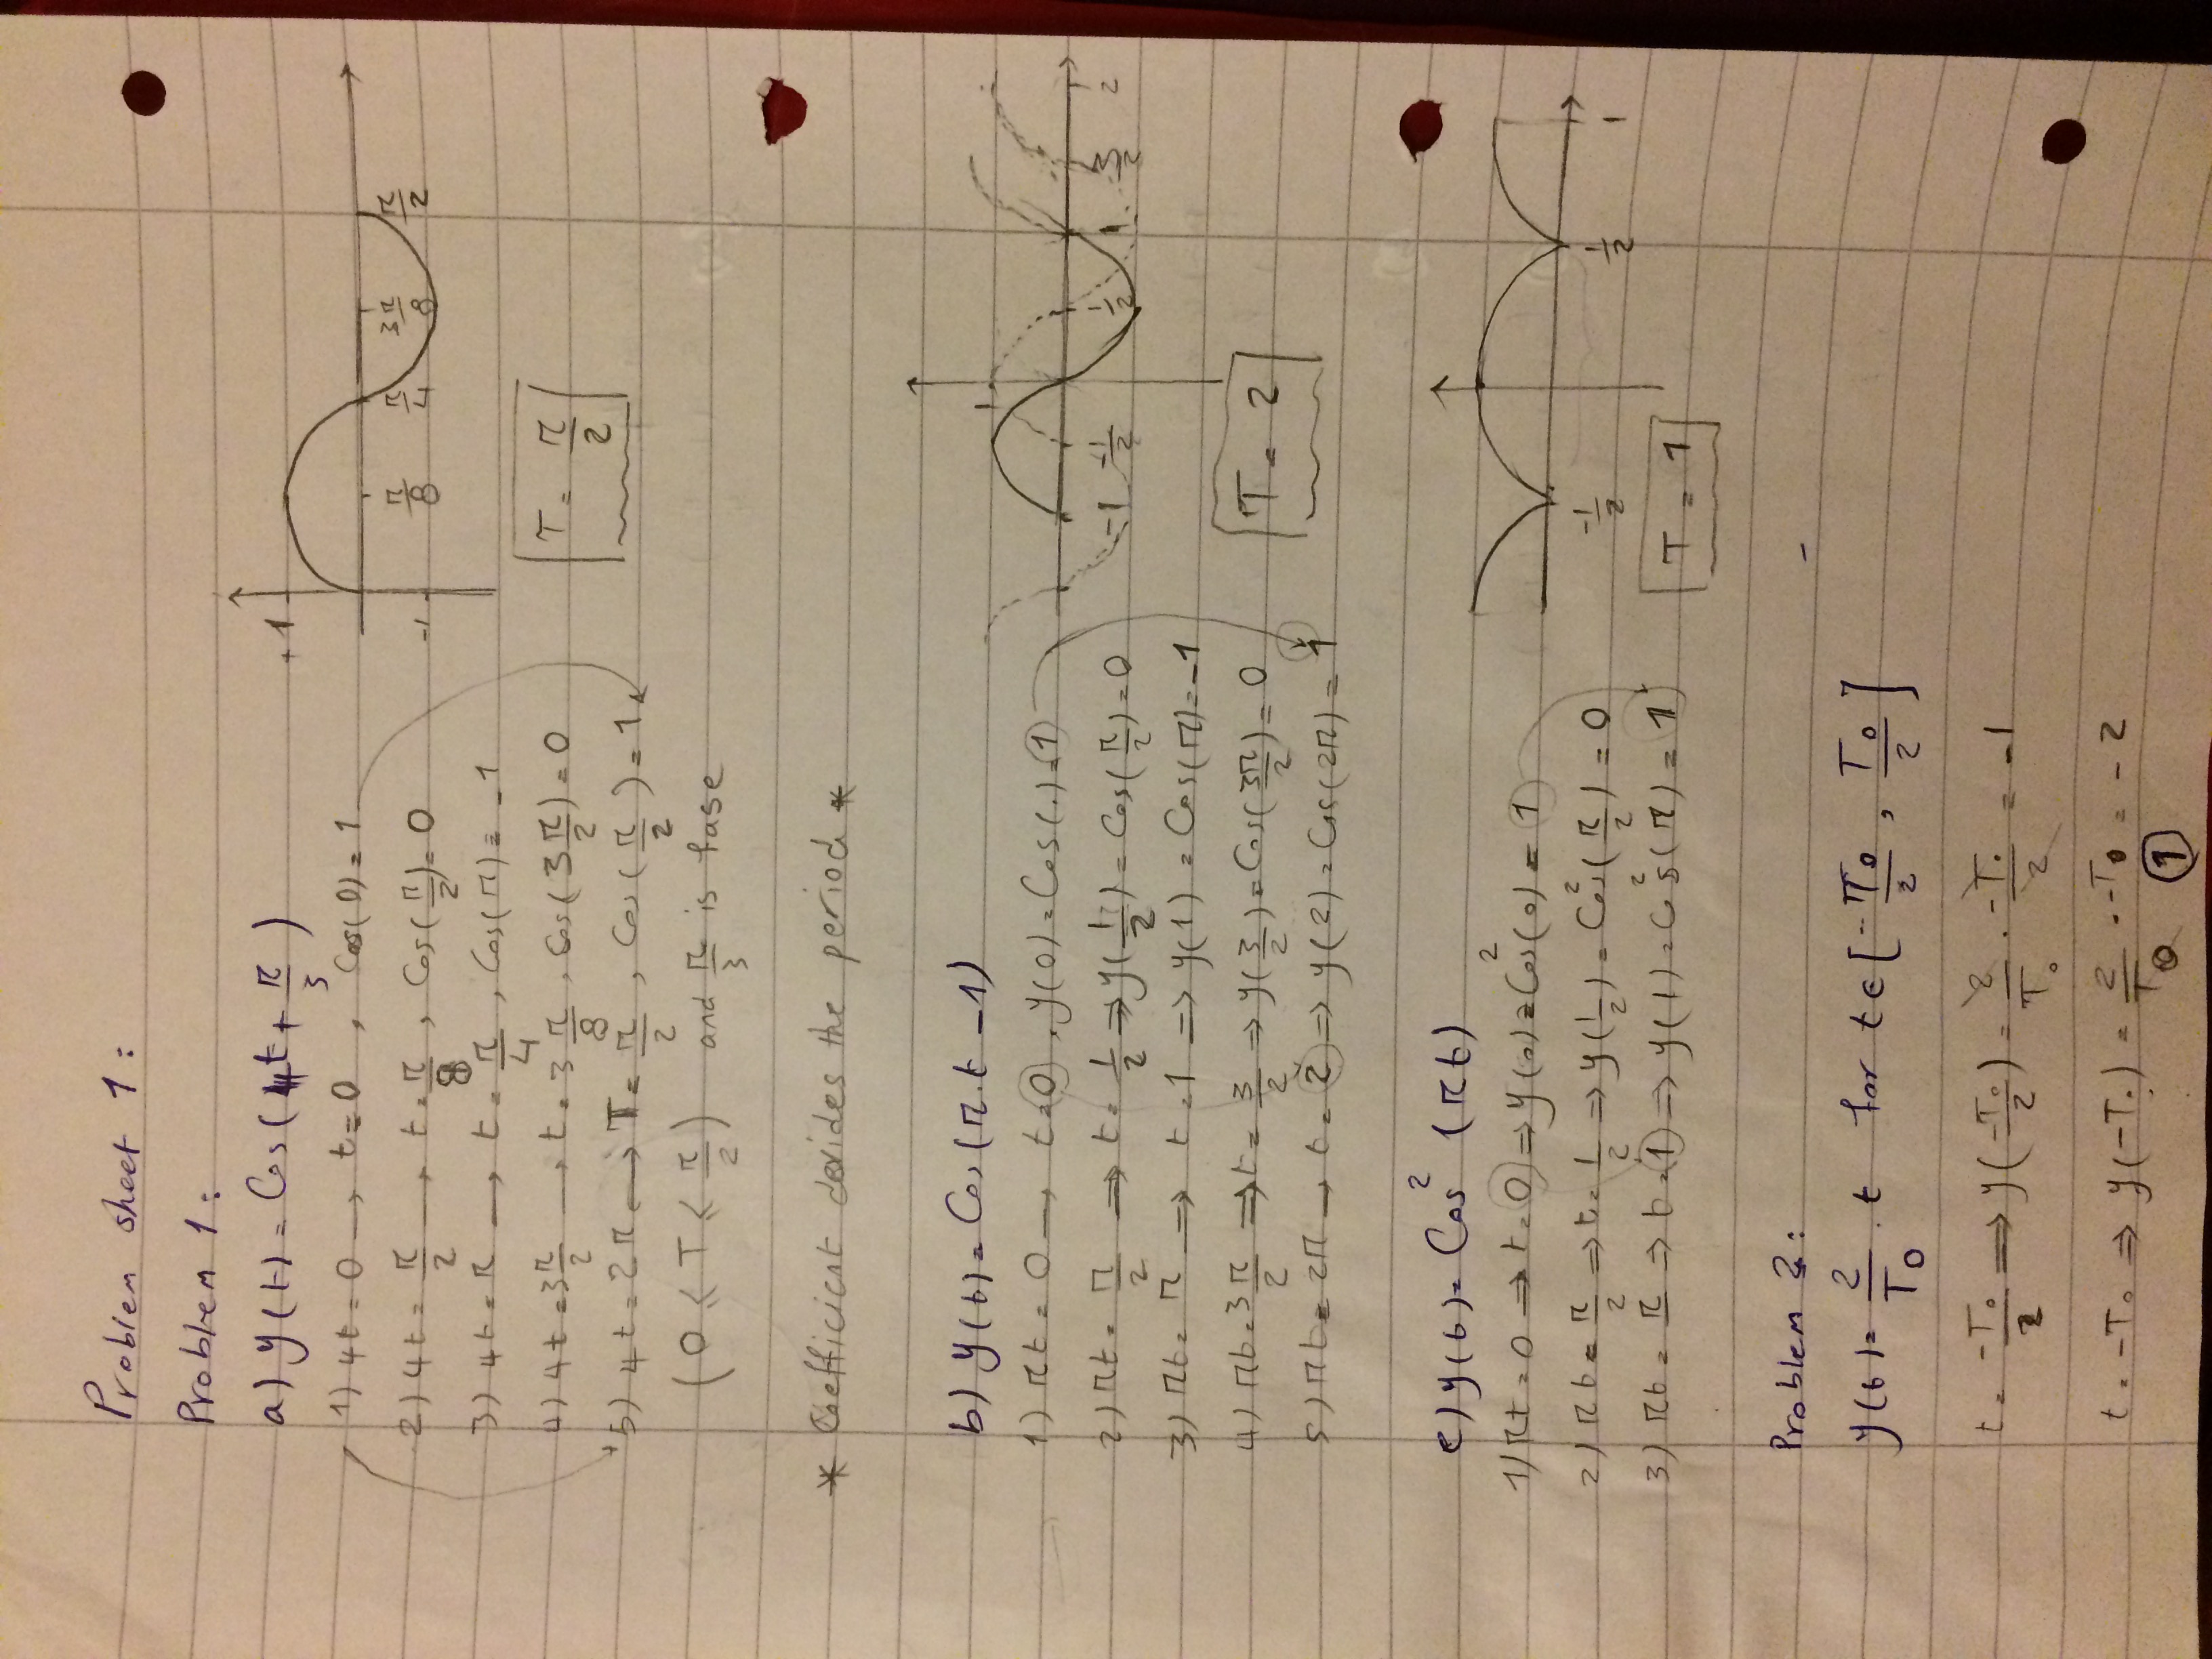 Problem sheet 1:
Problem 1:
a) y(t) = Cos(4t + π/3)
1) 4t = 0 → t = 0 , Cos(0) = 1
2) 4t = π/2 → t = π/8 , Cos(π/2) = 0
3) 4t = π → t = π/4 , Cos(π) = -1
4) 4t = 3π/2 → t = 3π/8 , Cos(3π/2) = 0
5) 4t = 2π → T = π/2 , Cos(π/2) = 1
(0 ≤ T ≤ π/2) and π/3 is fase
+1
-1
π/8 π/4 3π/8 π/2
T = π/2
* Coefficient devides the period *
b) y(t) = Cos(π.t - 1)
1) πt = 0 → t = 0 , y(0) = Cos(.) = 1
2) πt = π/2 ⇒ t = 1/2 ⇒ y(1/2) = Cos(π/2) = 0
3) πt = π ⇒ t = 1 ⇒ y(1) = Cos(π) = -1
4) πt = 3π/2 ⇒ t = 3/2 ⇒ y(3/2) = Cos(3π/2) = 0
5) πt = 2π → t = 2 ⇒ y(2) = Cos(2π) = 1
1
-1 -1/2 1/2 1 3/2 2
T = 2
c) y(t) = Cos² (πt)
1) πt = 0 ⇒ t = 0 ⇒ y(0) = Cos²(0) = 1
2) πt = π/2 ⇒ t = 1/2 ⇒ y(1/2) = Cos²(π/2) = 0
3) πt = π ⇒ t = 1 ⇒ y(1) = Cos²(π) = 1
-1/2 1/2 1
T = 1
Problem 2:
y(t) = 2/T₀ . t for t ∈ [-T₀/2 , T₀/2]
t = -T₀/2 ⇒ y(-T₀/2) = 2/T₀ . -T₀/2 = -1
t = -T₀ ⇒ y(-T₀) = 2/T₀ . -T₀ = -2
1